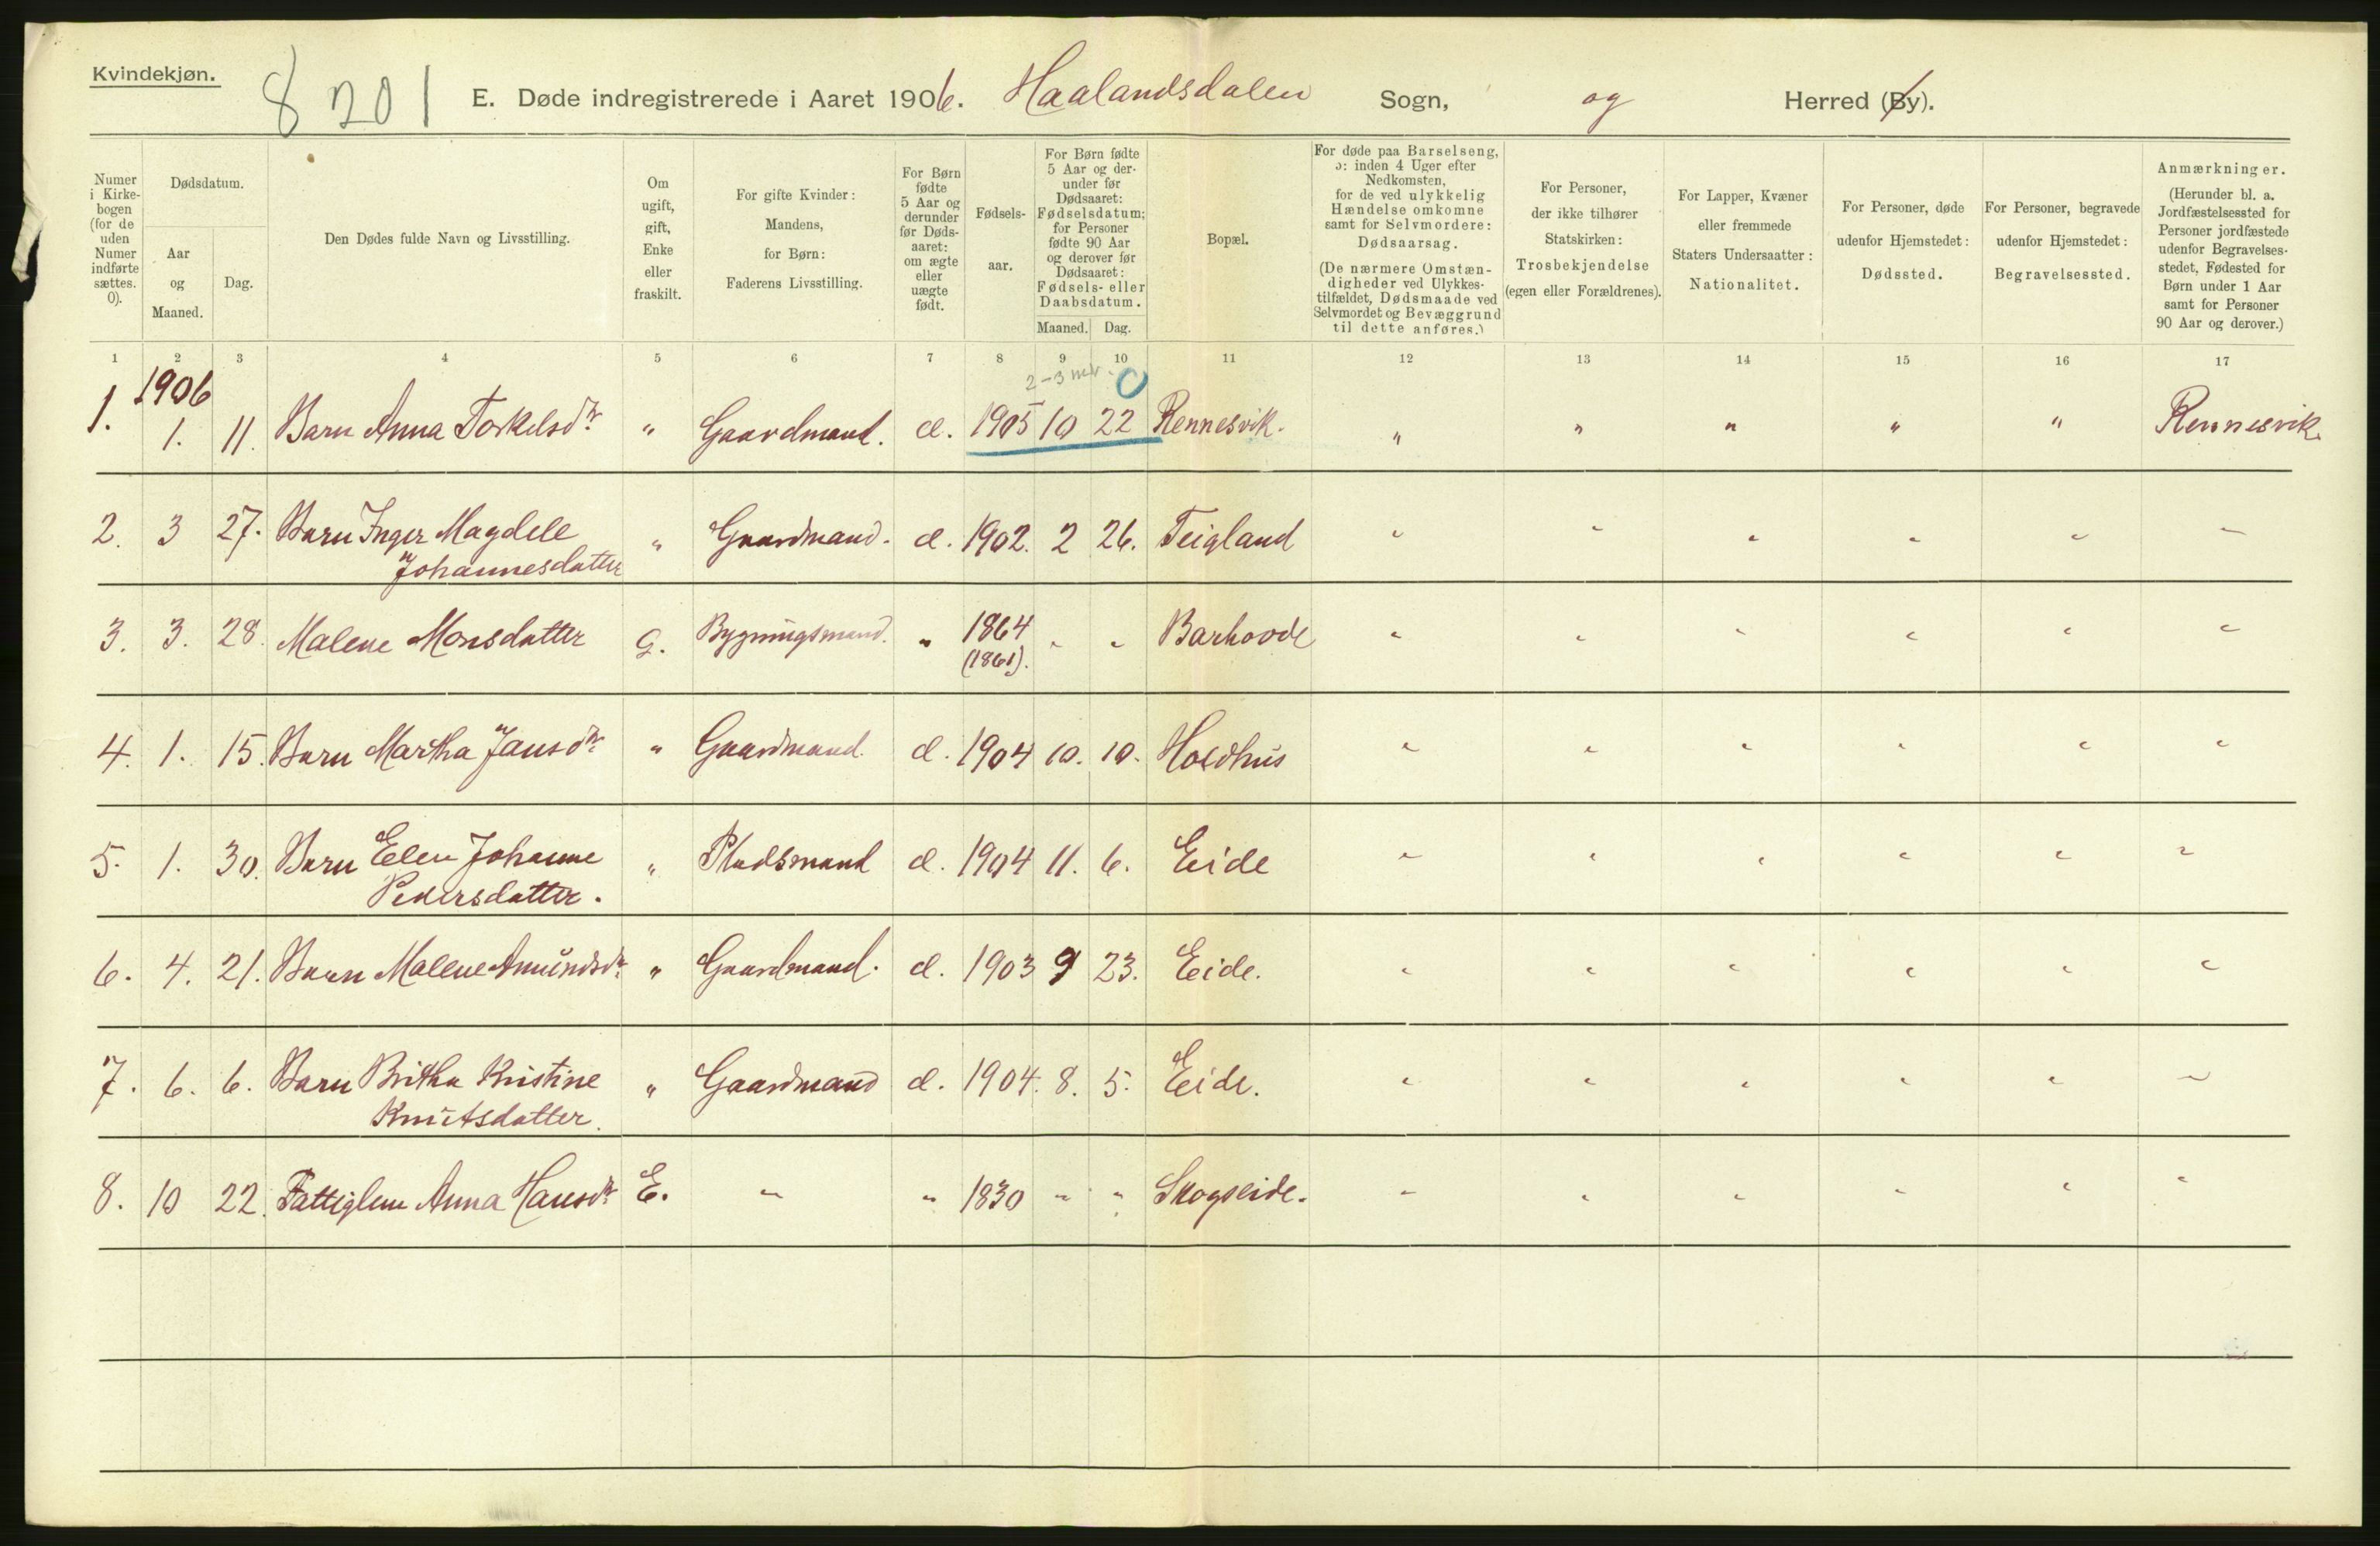 Kvindekjøn.
8 201
E. Døde indregistrerede i Aaret 1906. Haalandsdalen Sogn, og Herred (By).
Numer i Kirkebogen (for de uden Numer indførte sættes. 0).
Dødsdatum.
Aar og Maaned.
Dag.
Den Dødes fulde Navn og Livsstilling.
Om ugift, gift, Enke eller fraskilt.
For gifte Kvinder: Mandens, for Børn: Faderens Livsstilling.
For Børn fødte 5 Aar og derunder før Dødsaaret: om ægte eller uægte født.
Fødselsaar.
For Børn fødte 5 Aar og derunder før Dødsaaret: Fødselsdatum; for Personer fødte 90 Aar og derover før Dødsaaret: Fødsels- eller Daabsdatum.
Maaned. Dag.
Bopæl.
For døde paa Barselseng, ɔ: inden 4 Uger efter Nedkomsten, for de ved ulykkelig Hændelse omkomne samt for Selvmordere: Dødsaarsag.
(De nærmere Omstændigheder ved Ulykkestilfældet, Dødsmaade ved Selvmordet og Bevæggrund til dette anføres.)
For Personer, der ikke tilhører Statskirken: Trosbekjendelse (egen eller Forældrenes).
For Lapper, Kvæner eller fremmede Staters Undersaatter: Nationalitet.
For Personer, døde udenfor Hjemstedet: Dødssted.
For Personer, begravede udenfor Hjemstedet: Begravelsessted.
Anmærkninger.
(Herunder bl. a. Jordfæstelsessted for Personer jordfæstede udenfor Begravelsesstedet, Fødested for Børn under 1 Aar samt for Personer 90 Aar og derover.)
1 2 3 4 5 6 7 8 9 10 11 12 13 14 15 16 17
1906
2-3 mdr. 0
1. 1. 11. Barn Anna Torkelsdtr. " Gaardmand. æ. 1905 10 22 Rennesvik. " " " " " Rennesvik.
2. 3 27. Barn Inger Magdele " Gaardmand. æ. 1902. 2 26. Teigland " " " " " "
Johannesdatter
3. 3. 28. Malene Monsdatter G. Bygningsmand. " 1864 " " Barhovde " " " " " "
(1861).
4. 1. 15. Barn Martha Jansdtr. " Gaardmand. æ. 1904 10. 10. Holdhus " " " " " "
5. 1. 30. Barn Elen Johanne " Pladsmand æ. 1904 11. 6. Eide " " " " " "
Pedersdatter.
6. 4. 21. Barn Malene Amundsdtr. " Gaardmand. æ. 1903 9 23. Eide. " " " " " "
7. 6. 6. Barn Britha Kristine " Gaardmand æ. 1904. 8. 5. Eide. " " " " " "
Knutsdatter.
8. 10 22. Fattiglem Anna Hansdtr. E. " " 1830 " " Skogseide. " " " " " "